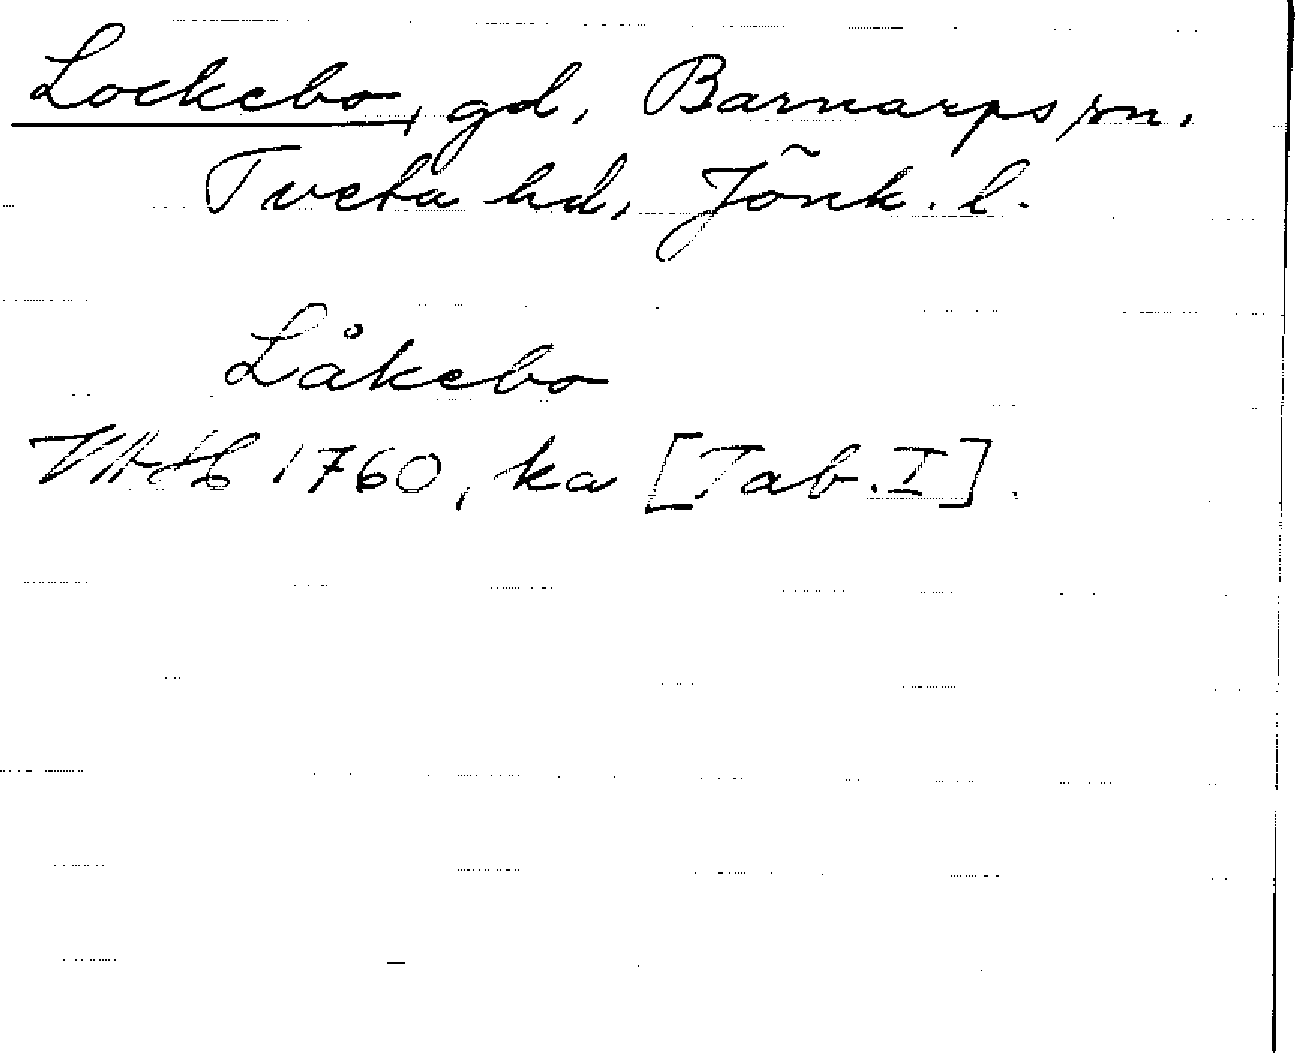 Lockebo, gd, Barnarps sn,
Tveta hd, Jönk. l.
Låkebo
VAH 1760, ka [Tab. I].